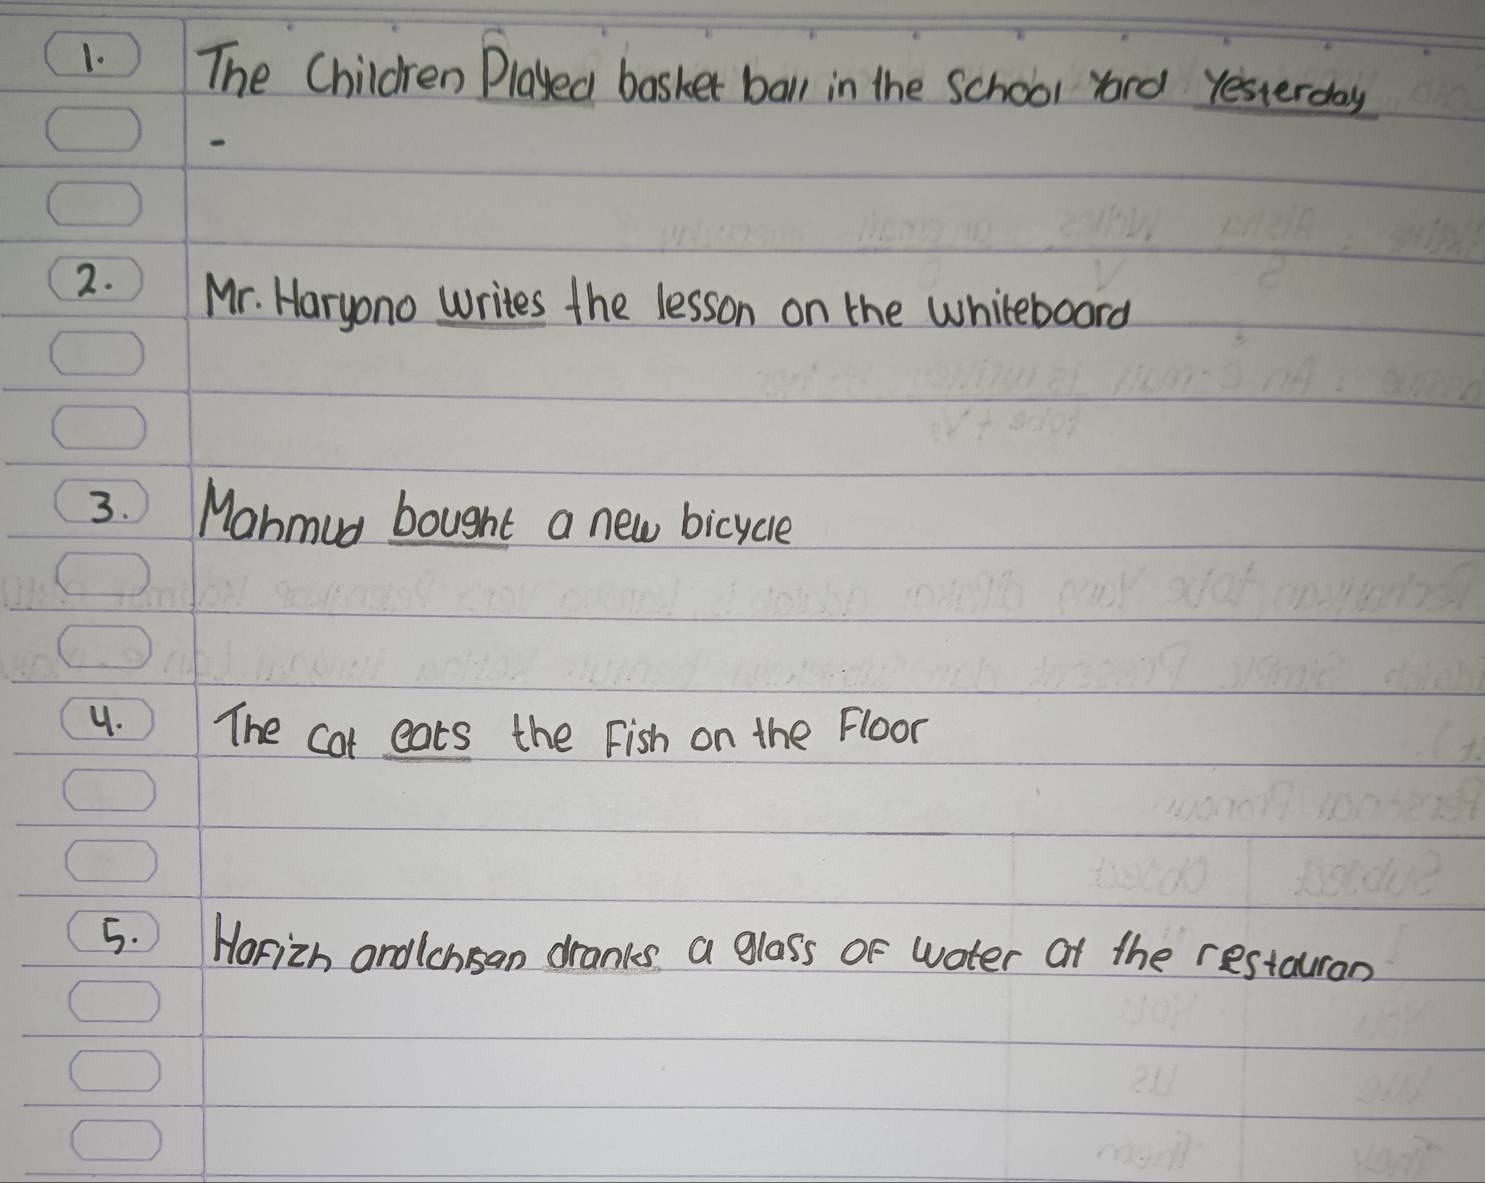 1. The Children Played basket ball in the School Yard Yesterday
-
2. Mr. Haryono writes the lesson on the whiteboard
3. Mahmud bought a new bicycle
4. The cat eats the Fish on the Floor
5. Hafizh and Ichsan dranks a glass OF water at the restauran